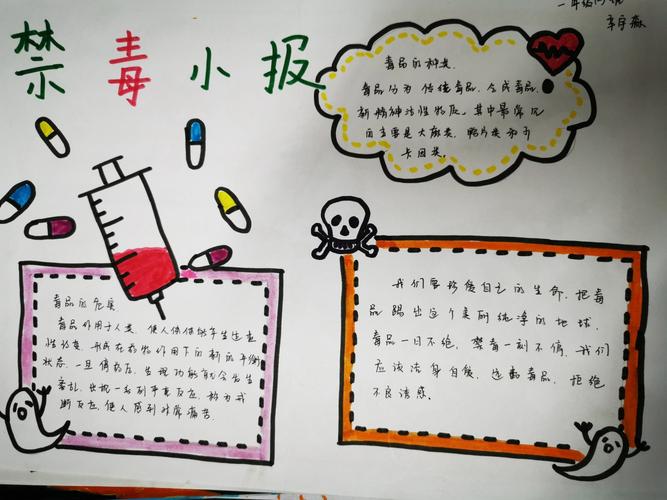 禁毒小报
毒品的种类
毒品分为 传统毒品、合成毒品、
新精神活性物质。其中最常见
的主要是大麻类、鸦片类和可
卡因类。
毒品的危害
毒品作用于人类,使人体体能产生适应
性改变,形成在药物作用下的新的平衡
状态,一旦停药后,生理功能就会发生
紊乱,出现一系列严重反应,称为戒
断反应,使人感到非常痛苦。
我们要珍爱自己的生命,把毒
品踢出这个美丽纯净的地球,
毒品一日不绝,禁毒一刻不停,我们
应该洁身自爱,远离毒品,拒绝
不良诱惑。